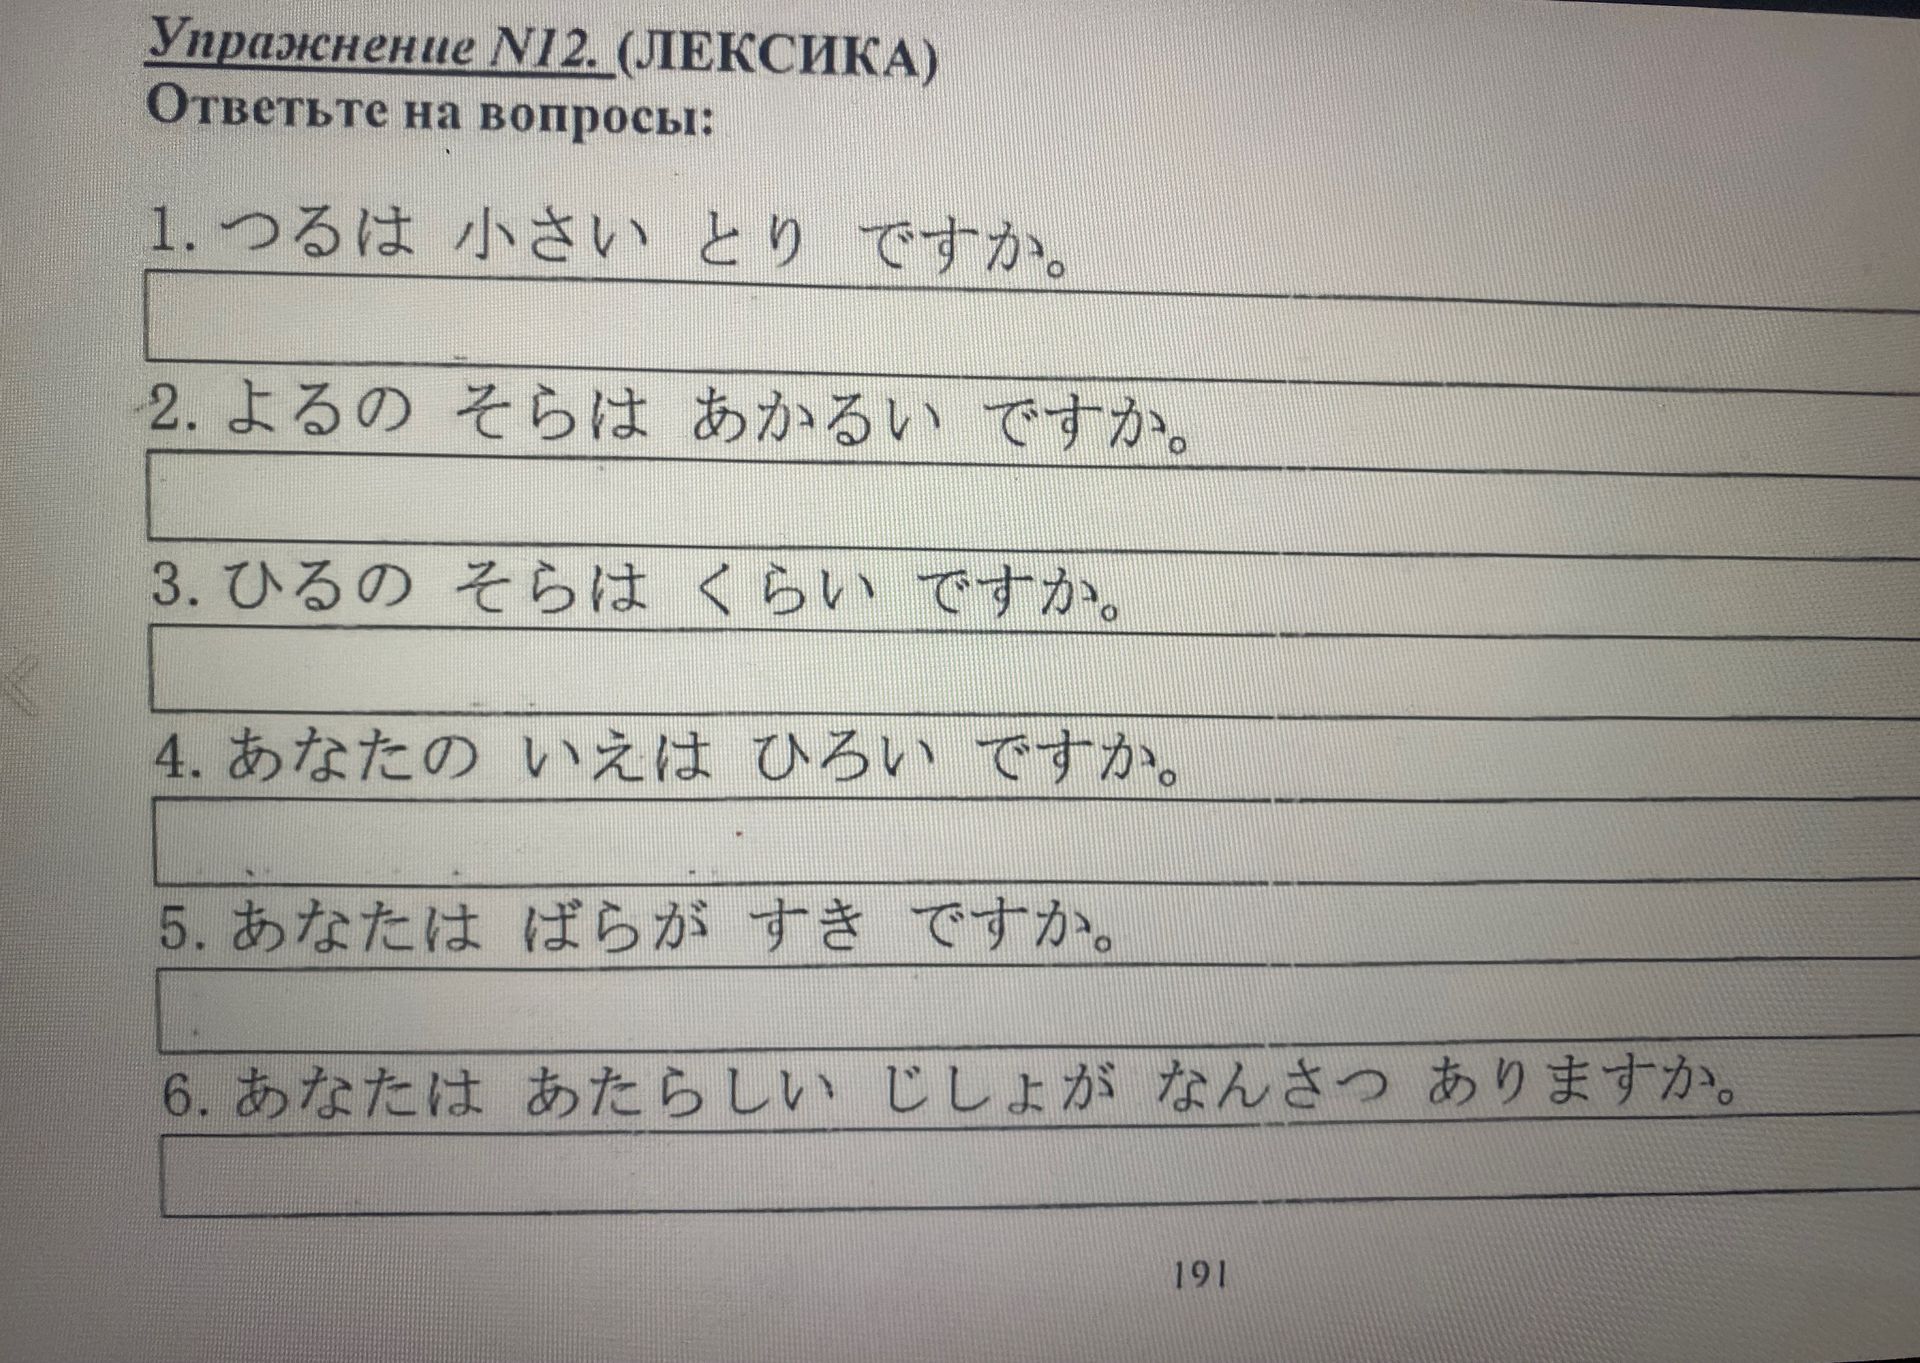 Упражнение N12. (ЛЕКСИКА)
Ответьте на вопросы:
1. つるは 小さい とり ですか。
2. よるの そらは あかるい ですか。
3. ひるの そらは くらい ですか。
4. あなたの いえは ひろい ですか。
5. あなたは ばらが すき ですか。
6. あなたは あたらしい じしょが なんさつ ありますか。
191